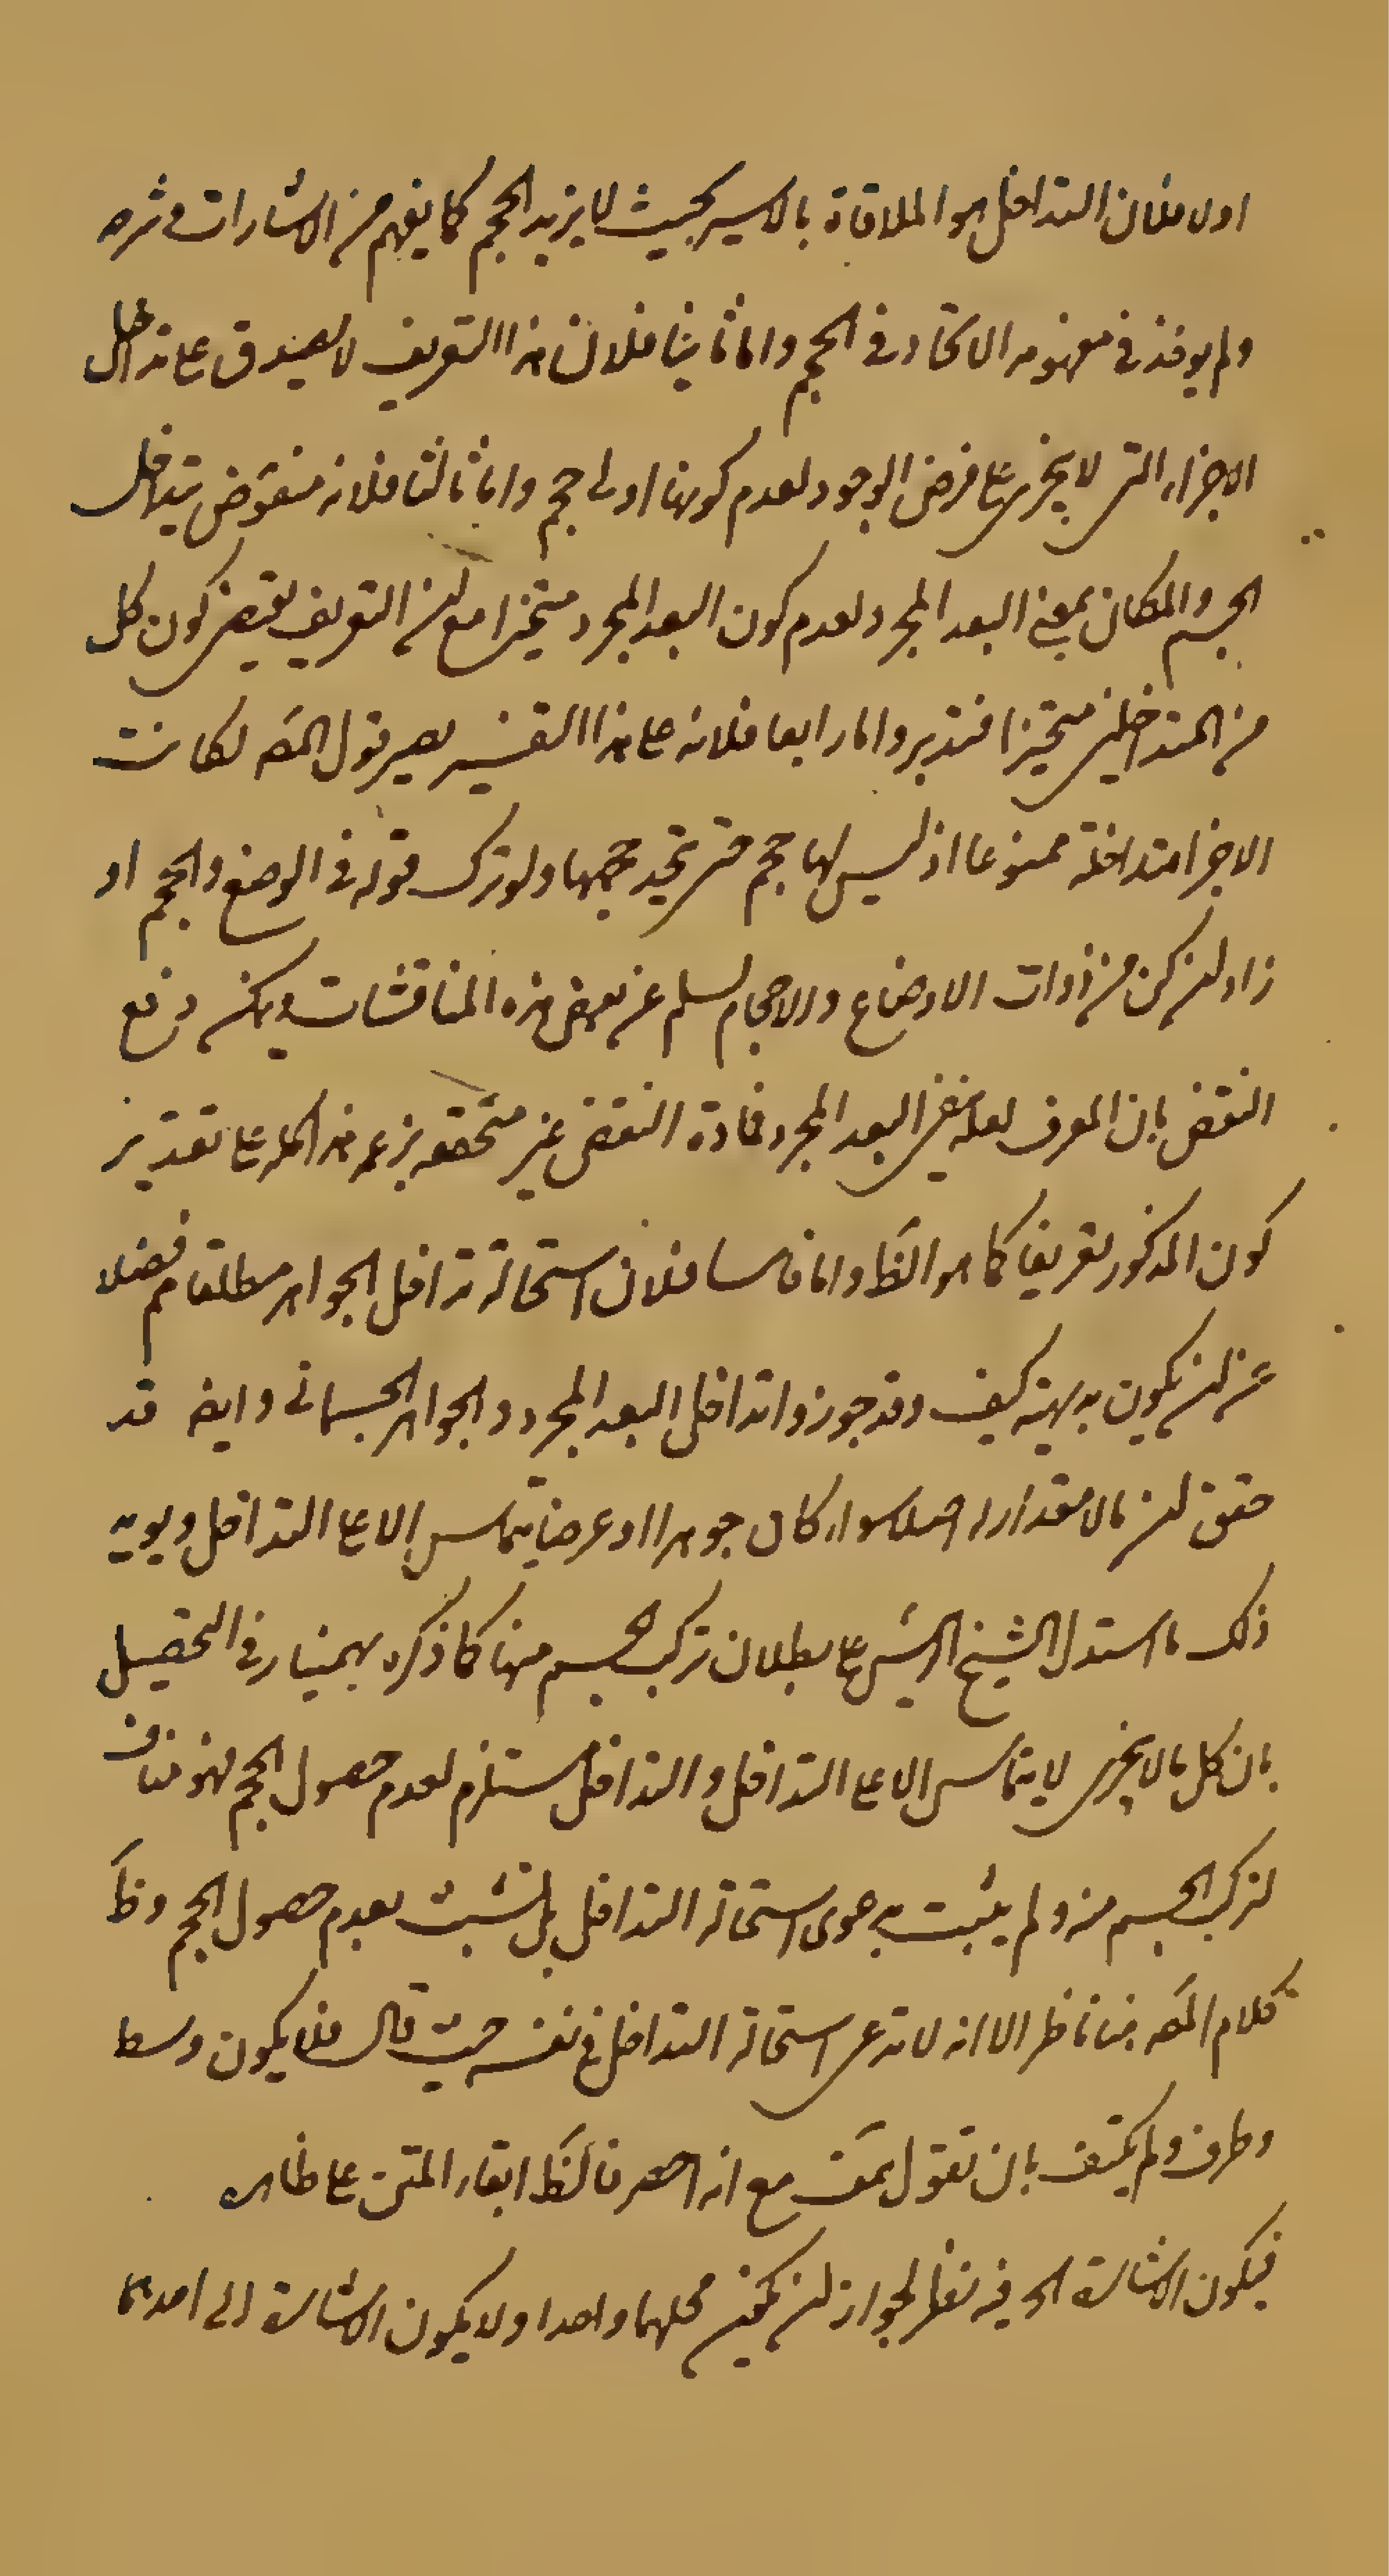 اولا فلان التداخل هو الملاقاة بالاسر بحيث لا يزيد الحجم كما يفهم من الاشارات و شرحه
ولم يوخذ في مفهومه الاتحاد في الحجم واما ثانيا فلان هذا التعريف لا يصدق على تداخل
الاجزاء التي لا يتجزى على فرض الوجود لعدم كونها اولى حجم واما ثالثا فلانه منقوض بتداخل
الجسم والمكان بمعنى البعد المجرد لعدم كون البعد المجرد متحيزا مع ان التعريف يقتضي كون كل
من المتداخلين متحيزا فتدبر واما رابعا فلانه على هذا التفسير يصير قول المص لكانت
الاجزا متداخلة ممنوعا اذ ليس لها حجم حتى يتحد حجمها ولو ترك قوله في الوضع والحجم او
زاد ان كن من ذوات الاوضاع والاحجام لسلم عن بعض هذه المناقشات ويمكن دفع
النقض بان المعرف لعله ينفي البعد المجرد فمادة النقض غير متحققه بزعمه هذا كله على تقدير
كون المذكور تعريفا كما هو الظ واما خامسا فلان استحالة تداخل الجواهر مطلقا مم فضلا
عن ان يكون بديهية كيف وقد جوزوا تداخل البعد المجرد والجواهر الجسماني وايض قد
حقق ان ما لا مقدار له اصلا سواء كان جوهرا او عرضا يتماس الا على التداخل ويويد
ذلك ما استدل الشيخ الرئيس على بطلان تركب الجسم منها كما ذكره بهمنيار في التحصيل
بان كل ما لا يتجزى لا يتماس الا على التداخل والتداخل مستلزم لعدم حصول الحجم فهو مناف
لتركب الجسم منه ولم يثبت بدعوى استحالة التداخل بل تشبث بعدم حصول الحجم وظ
كلام المص هنا ناظر الا انه لا تدعى استحالة التداخل في نفسه حيث قال فلا يكون وسط
وطرف ولم يكتف بان نقول يمتف مع انه اخصر فالظ ابقاء المتن على ظاهره
فيكون الاشارة الخ فيه نظر لجواز ان يكون محلهما واحدا ولا يكون الاشارة الى احدهما